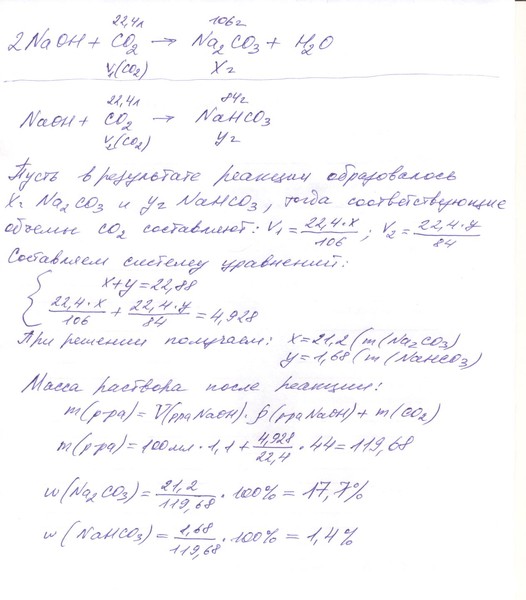 22,4л 106г
2NaOH + CO2 → Na2CO3 + H2O
V1(CO2) Xг
22,4л 84г
NaOH + CO2 → NaHCO3
V2(CO2) Yг
Пусть в результате реакции образовалось
Xг Na2CO3 и Yг NaHCO3, тогда соответствующие
объемы CO2 составляют: V1 = 22,4·X/106 ; V2 = 22,4·Y/84
Составляем систему уравнений:
{ X+Y=22,88
22,4·X/106 + 22,4·Y/84 = 4,928
При решении получаем: X=21,2 (m(Na2CO3)
Y=1,68 (m(NaHCO3)
Масса раствора после реакции:
m(р-ра) = V(рраNaOH)·ρ(рраNaOH) + m(CO2)
m(р-ра) = 100мл·1,1 + 4,928/22,4·44 = 119,68
w(Na2CO3) = 21,2/119,68·100% = 17,7%
w(NaHCO3) = 1,68/119,68·100% = 1,4%